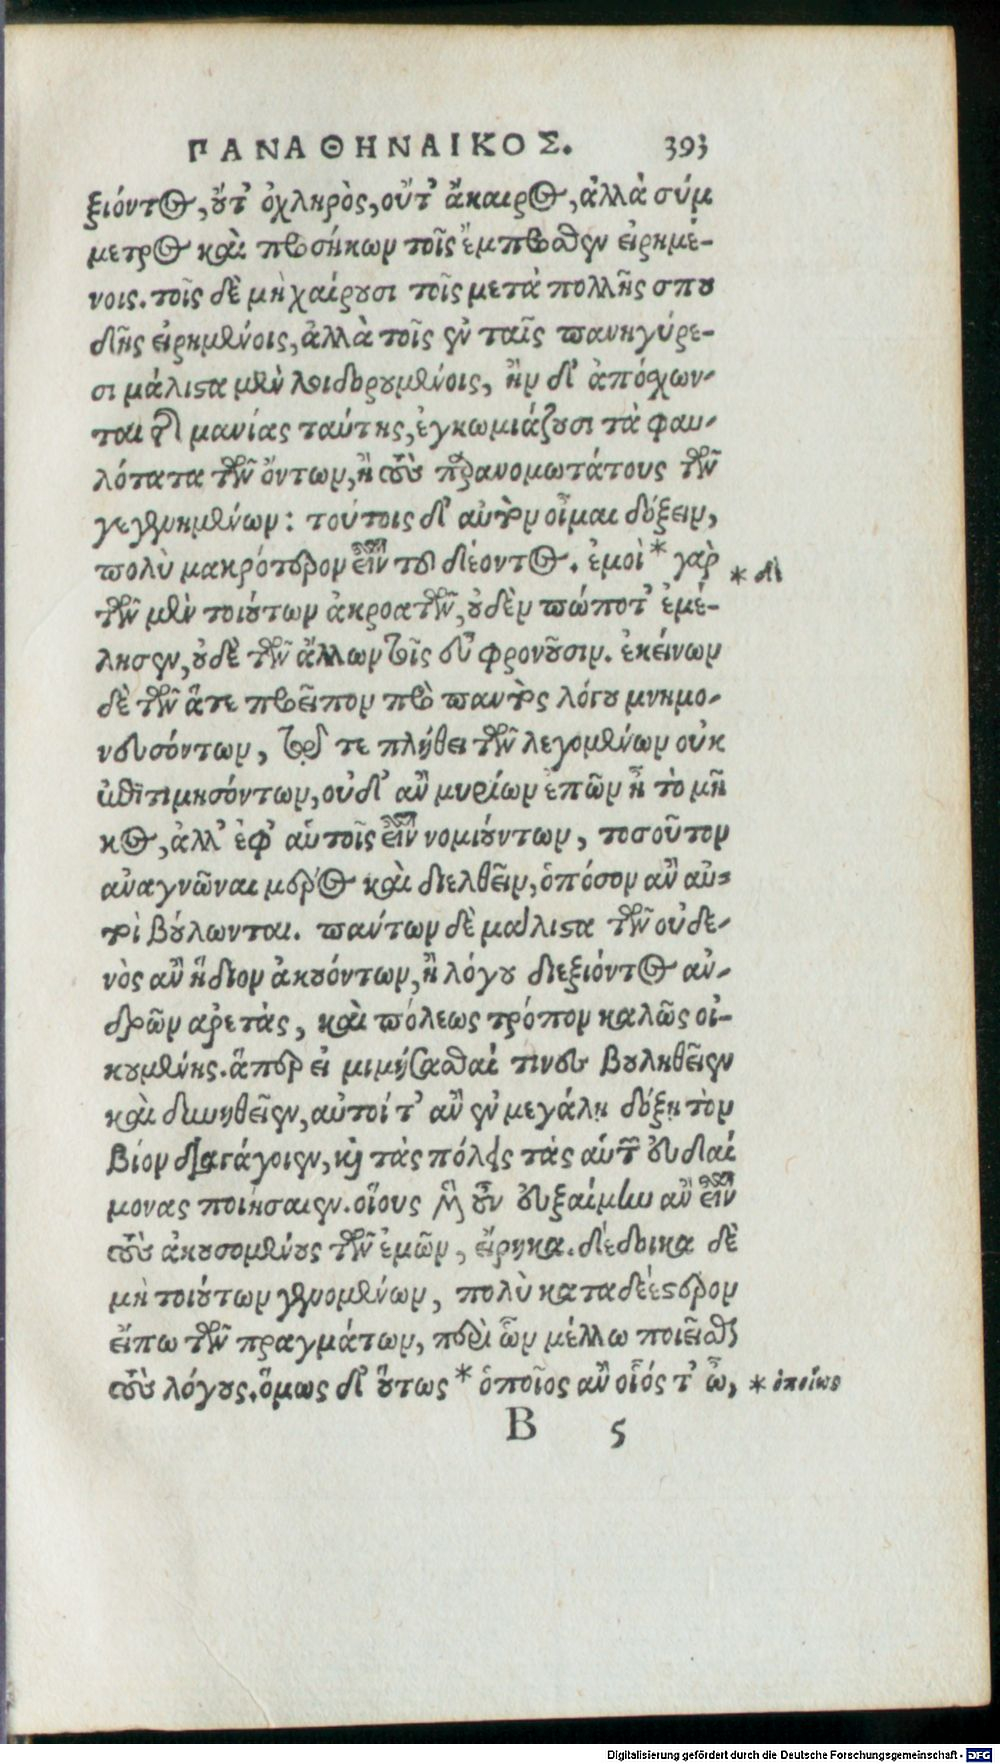 ΠΑΝΑΘΗΝΑΙΚΟΣ. 393
ξιόντος, οὔτ' ὀχληρὸς, οὔτ' ἄκαιρος, ἀλλὰ σύμ
μετρος καὶ προσήκων τοῖς ἔμπροσθεν εἰρημέ-
νοις. τοῖς δὲ μὴ χαίρουσι τοῖς μετὰ πολλῆς σπου
δῆς εἰρημένοις, ἀλλὰ τοῖς ἐν ταῖς πανηγύρε-
σι μάλιστα μὲν λοιδορουμένοις, ἢν δ' ἀπόσχων-
ται τῆς μανίας ταύτης, ἐγκωμιάζουσι τὰ φαυ-
λότατα τῶν ὄντων, ἢ τοὺς παρανομωτάτους τῶν
γεγενημένων: τούτοις δ' αὐτὸν οἶμαι δόξειν,
πολὺ μακρότερον εἶναι τοῦ δέοντος. ἐμοὶ * γὰρ
* δὲ
τῶν μὲν τοιούτων ἀκροατῶν, οὐδὲν πώποτ' ἐμέ-
λησεν, οὐδὲ τῶν ἄλλων τοῖς εὖ φρονοῦσιν. ἐκείνων
δὲ τῶν ἅτε προεῖπον πρὸ παντὸς λόγου μνημο-
νευσόντων, τῷ τε πλήθει τῶν λεγομένων οὐκ
ἐπιτιμησόντων, οὐδ' ἂν μυρίων ἐπῶν ᾖ τὸ μῆ
κος, ἀλλ' ἐφ' αὑτοῖς εἶναι νομιούντων, τοσοῦτον
ἀναγνῶναι μέρος καὶ διελθεῖν, ὁπόσον ἂν αὐ-
τοὶ βούλωνται. πάντων δὲ μάλιστα τῶν οὐδε-
νὸς ἂν ἥδιον ἀκουόντων, ἢ λόγου διεξιόντος ἀν-
δρῶν ἀρετὰς, καὶ πόλεως τρόπον καλῶς οἰ-
κουμένης. ἅπερ εἰ μιμήσασθαί τινες βουληθεῖεν
καὶ δυνηθεῖεν, αὐτοί τ' ἂν ἐν μεγάλῃ δόξῃ τὸν
βίον διαγάγοιεν, καὶ τὰς πόλεις τὰς αὑτῶν εὐδαί
μονας ποιήσαιεν. οἵους μὲν οὖν εὐξαίμην ἂν εἶναι
τοὺς ἀκουσομένους τῶν ἐμῶν, εἴρηκα. δέδοικα δὲ
μὴ τοιούτων γενομένων, πολὺ καταδεέστερον
εἴπω τῶν πραγμάτων, περὶ ὧν μέλλω ποιεῖσθαι
τοὺς λόγους. ὅμως δ' οὕτως * ὁποῖος ἂν οἷός τ' ὦ,
* ὁποίως
B 5
Digitalisierung gefördert durch die Deutsche Forschungsgemeinschaft - DFG